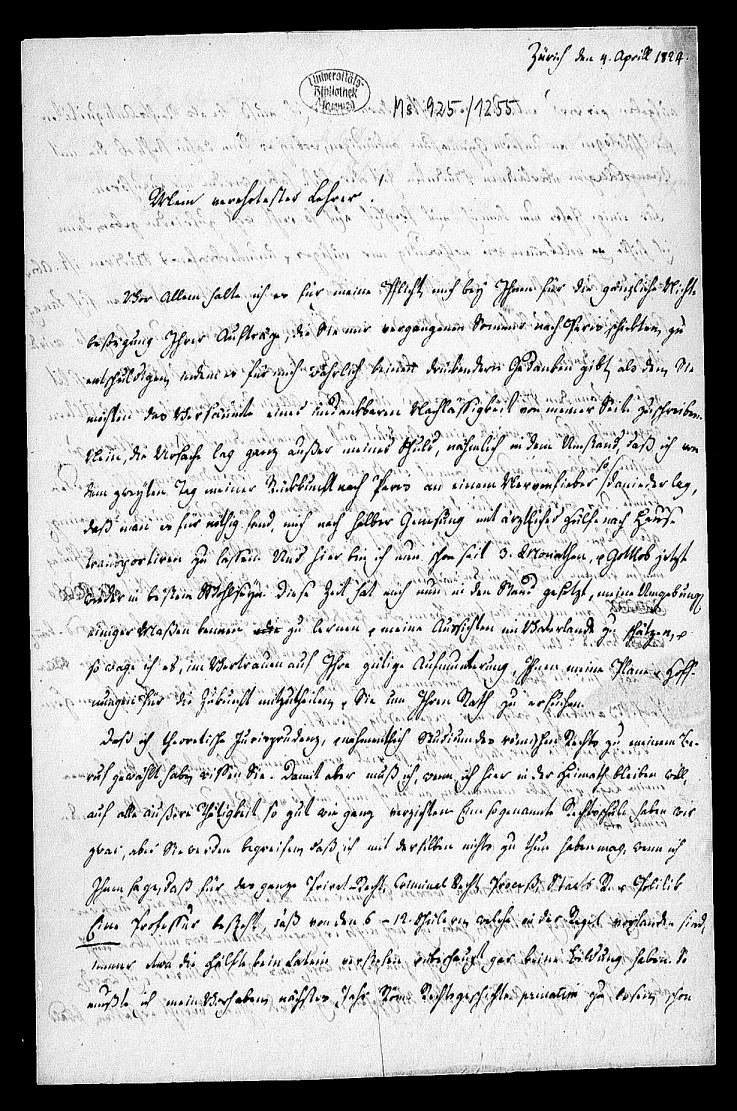 Zürich den 4. Aprill 1824.
Universitäts-
Bibliothek
Marburg
Ms 925/1255
Mein verehrtester Lehrer!
Vor Allem halte ich es für meine Pflicht, mich bey Ihnen für die gänzliche Nicht-
besorgung Ihrer Aufträge, die Sie mir vergangenen Sommer nach Paris schickten, zu
entschuldigen, indem es für mich wahrlich keinen drückendern Gedanken gibt, als den, Sie
möchten das Versäumte einer undankbaren Nachlässigkeit von meiner Seite zuschreiben.
Nein, die Ursache lag ganz außer meiner Schuld, nähmlich in dem Umstand, daß ich von
dem zweyten Tag meiner Rückkunft nach Paris an einem Nervenfieber so danieder lag,
daß man es für nöthig fand, mich nach halber Genesung mit ärztlicher Hülfe nach Hause
transportiren zu lassen. Und hier bin ich nun schon seit 3. Monathen, u Gottlob jetzt
wieder in bestem Wohlseyn. Diese Zeit hat mich nun in den Stand gesetzt, meine Umgebung
einiger Maßen kennen zu lernen u meine Aussichten im Vaterlande zu schätzen, u
so wage ich es, im Vertrauen auf Ihre gütige Aufmunterung, Ihnen meine Plane u Hoff-
nungen für die Zukunft mitzutheilen, u Sie um Ihren Rath zu ersuchen.
Daß ich theoretische Jurisprudenz, u nahmentlich Studium des römischen Rechts zu meinem Be-
ruf gewählt haben wissen Sie. Damit aber muß ich, wenn ich hier in der Heimath bleiben will,
auf alle äußere Thätigkeit so gut wie ganz verzichten. Eine sogenannte Rechtsschule haben wir
zwar, aber Sie werden begreifen, daß ich mit derselben nichts zu thun haben mag, wenn ich
Ihnen sage, daß für das ganze Privat-Recht, Criminal Recht, Proceß, Staats R. u Politik
Eine Professur besteht, daß von den 6 – 12 Schülern welche in der Regel vorhanden sind,
immer etwa die Hälfte kein Latein verstehen u überhaupt gar keine Bildung haben. So
mußte ich mein Vorhaben, nächstes Jahr Röm. Rechtsgeschichte privatim zu lesen, schon